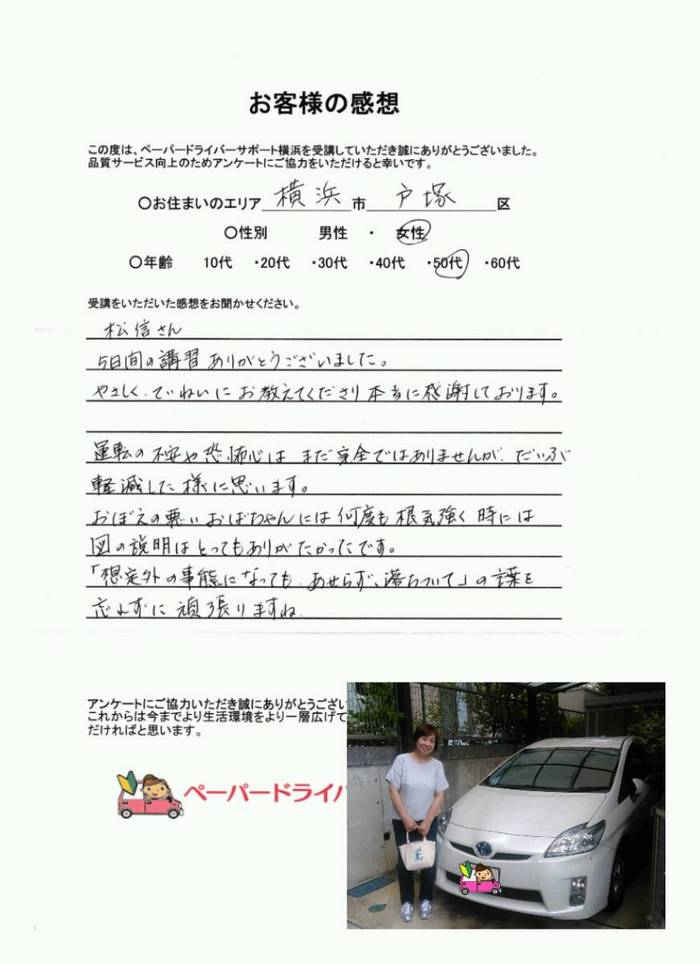 お客様の感想
この度は、ペーパードライバーサポート横浜を受講していただき誠にありがとうございました。
品質サービス向上のためアンケートにご協力をいただけると幸いです。
〇お住まいのエリア 横浜 市 戸塚 区
〇性別 男性 ・ 女性
〇年齢 10代 ・20代 ・30代 ・40代 ・50代 ・60代
受講をいただいた感想をお聞かせください。
松信さん
5日間の講習ありがとうございました。
やさしく、ていねいにお教えてくださり本当に感謝しております。
運転の不安や恐怖心はまだ完全ではありませんが、だいぶ
軽減した様に思います。
おぼえの悪いおばちゃんには何度も根気強く時には
図の説明はとってもありがたかったです。
「想定外の事態になっても、あせらず、落ちついて」の言葉を
忘れずに頑張りますね
アンケートにご協力いただき誠にありがとうござい
これからは今までより生活環境をより一層広げて
だければと思います。
ペーパードライバ